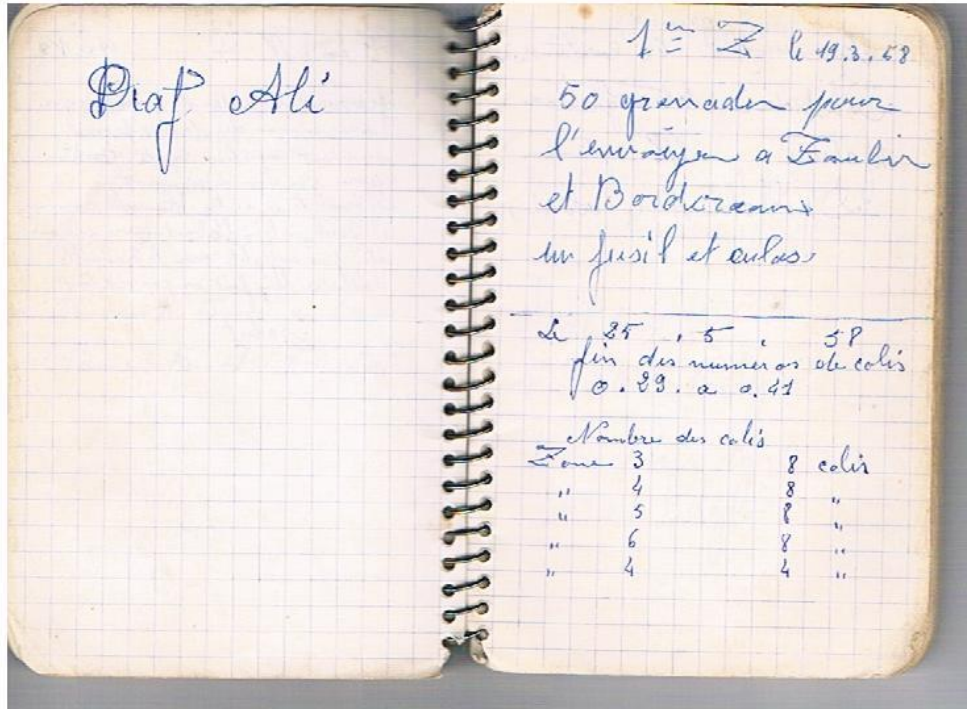 Draf Ali
1ère Z le 19.3.58
50 grenader pour
l'envoiyer a
et Bordereaux
un fusil et culas
Le 25 . 5 . 58
fin des numeros de colis
0.29. a 0.41
Nombre des colis
Zone 3 8 colis
" 4 8 "
" 5 8 "
" 6 8 "
" 4 4 "